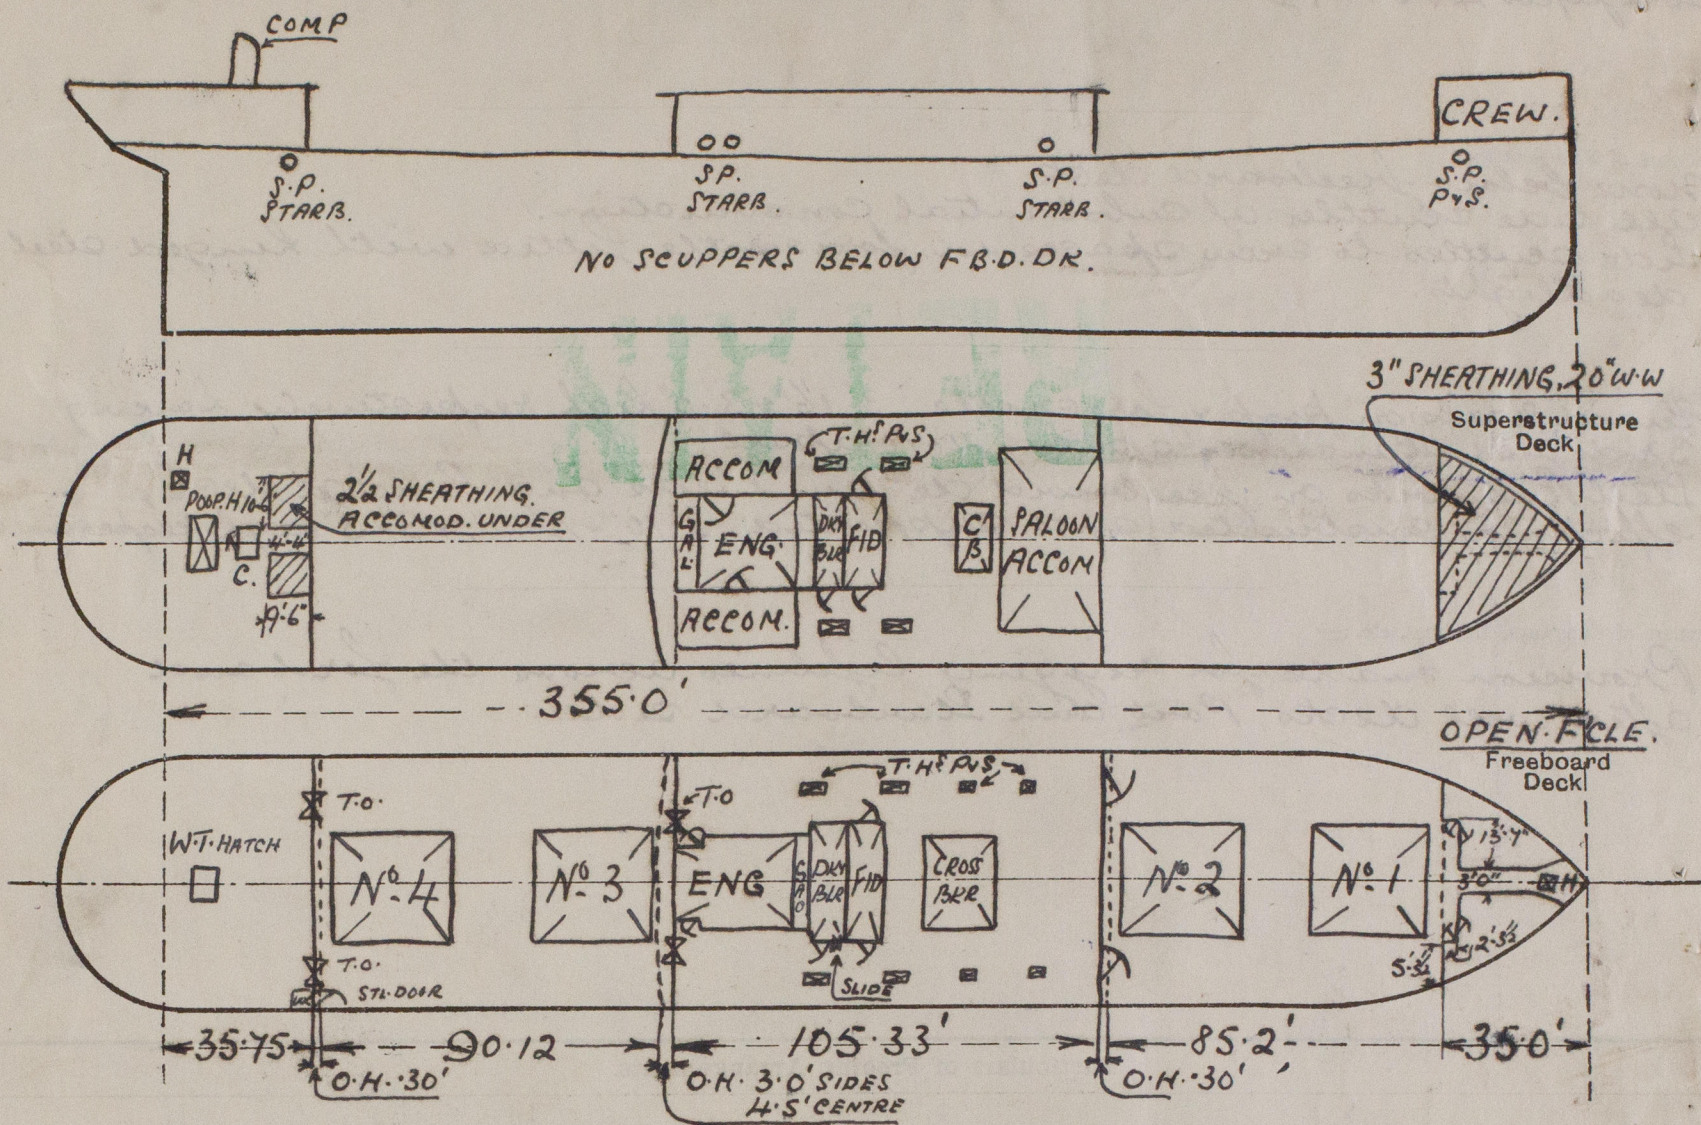 COMP
CREW.
S.P.
STARB.
S.P.
STARB.
S.P.
STARB.
S.P.
P&S.
NO SCUPPERS BELOW F B.D. DK.
3" SHEATHING, 20" W.W
Superstructure
Deck
H
POOP.H
2½ SHEATHING.
ACCOMOD. UNDER
4'-4"
C.
9'-6"
ACCOM
T.Hs P&S
GAL
ENG.
DKY
BLR
FID
C
B
SALOON
ACCOM
ACCOM.
355.0'
OPEN. F'CLE.
Freeboard
Deck
T.O.
T.O
T.Hs P&S
W.T. HATCH
No 4
No 3
ENG
DKY
BLR
FID
CROSS
BKR
No 2
No 1
13'-4"
3'0"
H
T.O.
STL. DOOR
SLIDE
35.75
90.12
105.33'
85.2'
35.0'
O.H. .30'
O.H. 3.0' SIDES
4.5' CENTRE
O.H. .30'